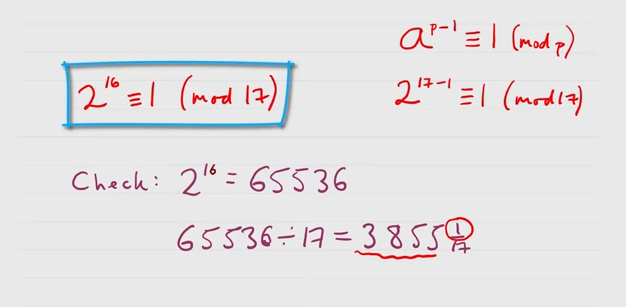 a^(p-1) ≡ 1 (mod p)
2^16 ≡ 1 (mod 17)
2^(17-1) ≡ 1 (mod 17)
Check: 2^16 = 65536
65536 ÷ 17 = 3855 1/17